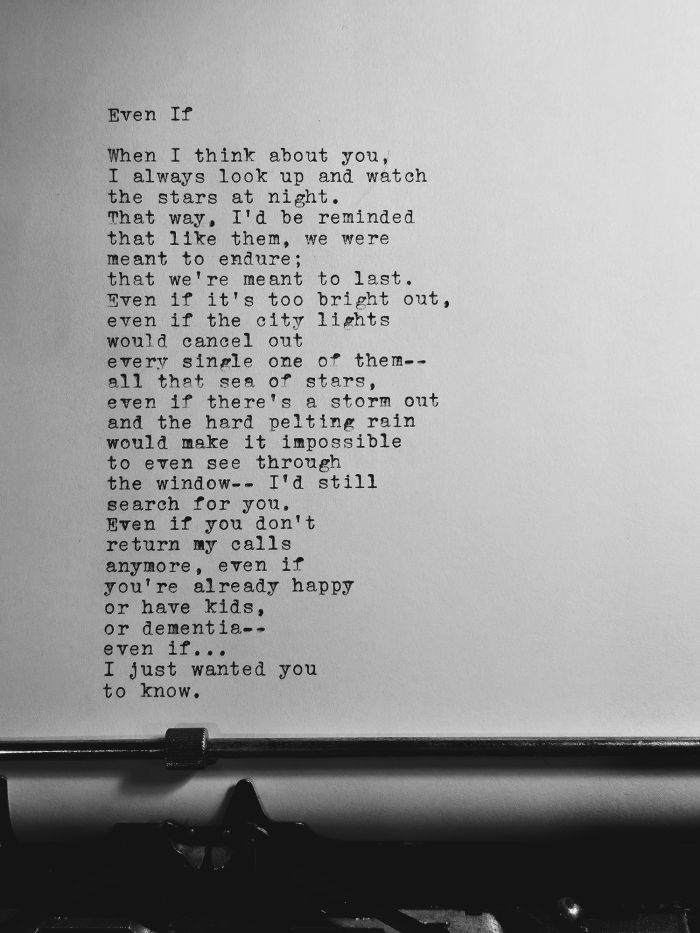 Even If
When I think about you,
I always look up and watch
the stars at night.
That way, I'd be reminded
that like them, we were
meant to endure;
that we're meant to last.
Even if it's too bright out,
even if the city lights
would cancel out
every single one of them--
all that sea of stars,
even if there's a storm out
and the hard pelting rain
would make it impossible
to even see through
the window-- I'd still
search for you.
Even if you don't
return my calls
anymore, even if
you're already happy
or have kids,
or dementia--
even if...
I just wanted you
to know.